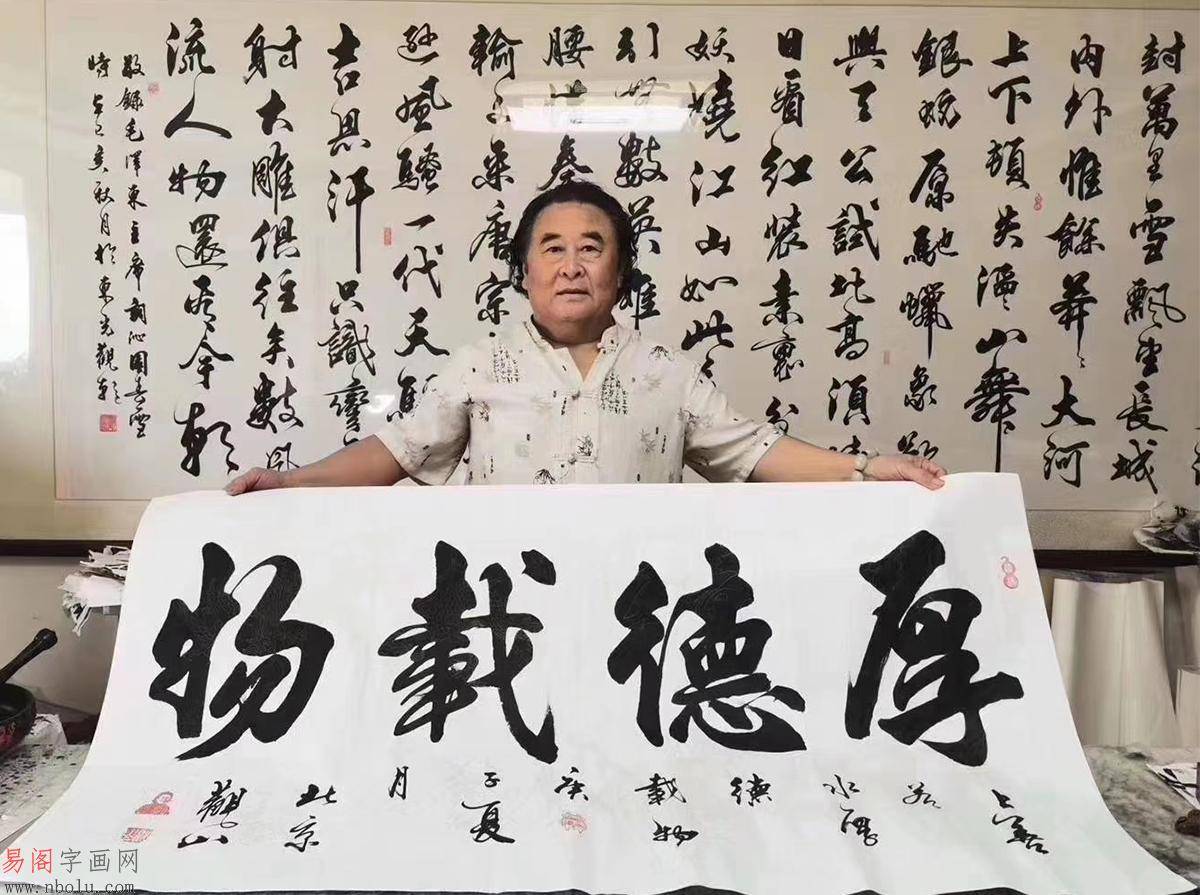 封萬里雪飄望長城
内外惟餘莽々大河
上下頓失滔々山舞
銀蛇原馳蠟象欲
與天公試比高須晴
日看紅裝素裹分
妖嬈江山如此多
引無數英雄
腰惜秦
輸文采唐宗
遜風騷一代天驕
吉思汗只識彎
射大雕俱往矣數風
流人物還看今朝
敬錄毛澤東主席詞沁園春雪
厚德載物
上善
若
水厚
德
載物
庚
子夏
月
北京
觀山
易阁字画网
www.nbolu.com